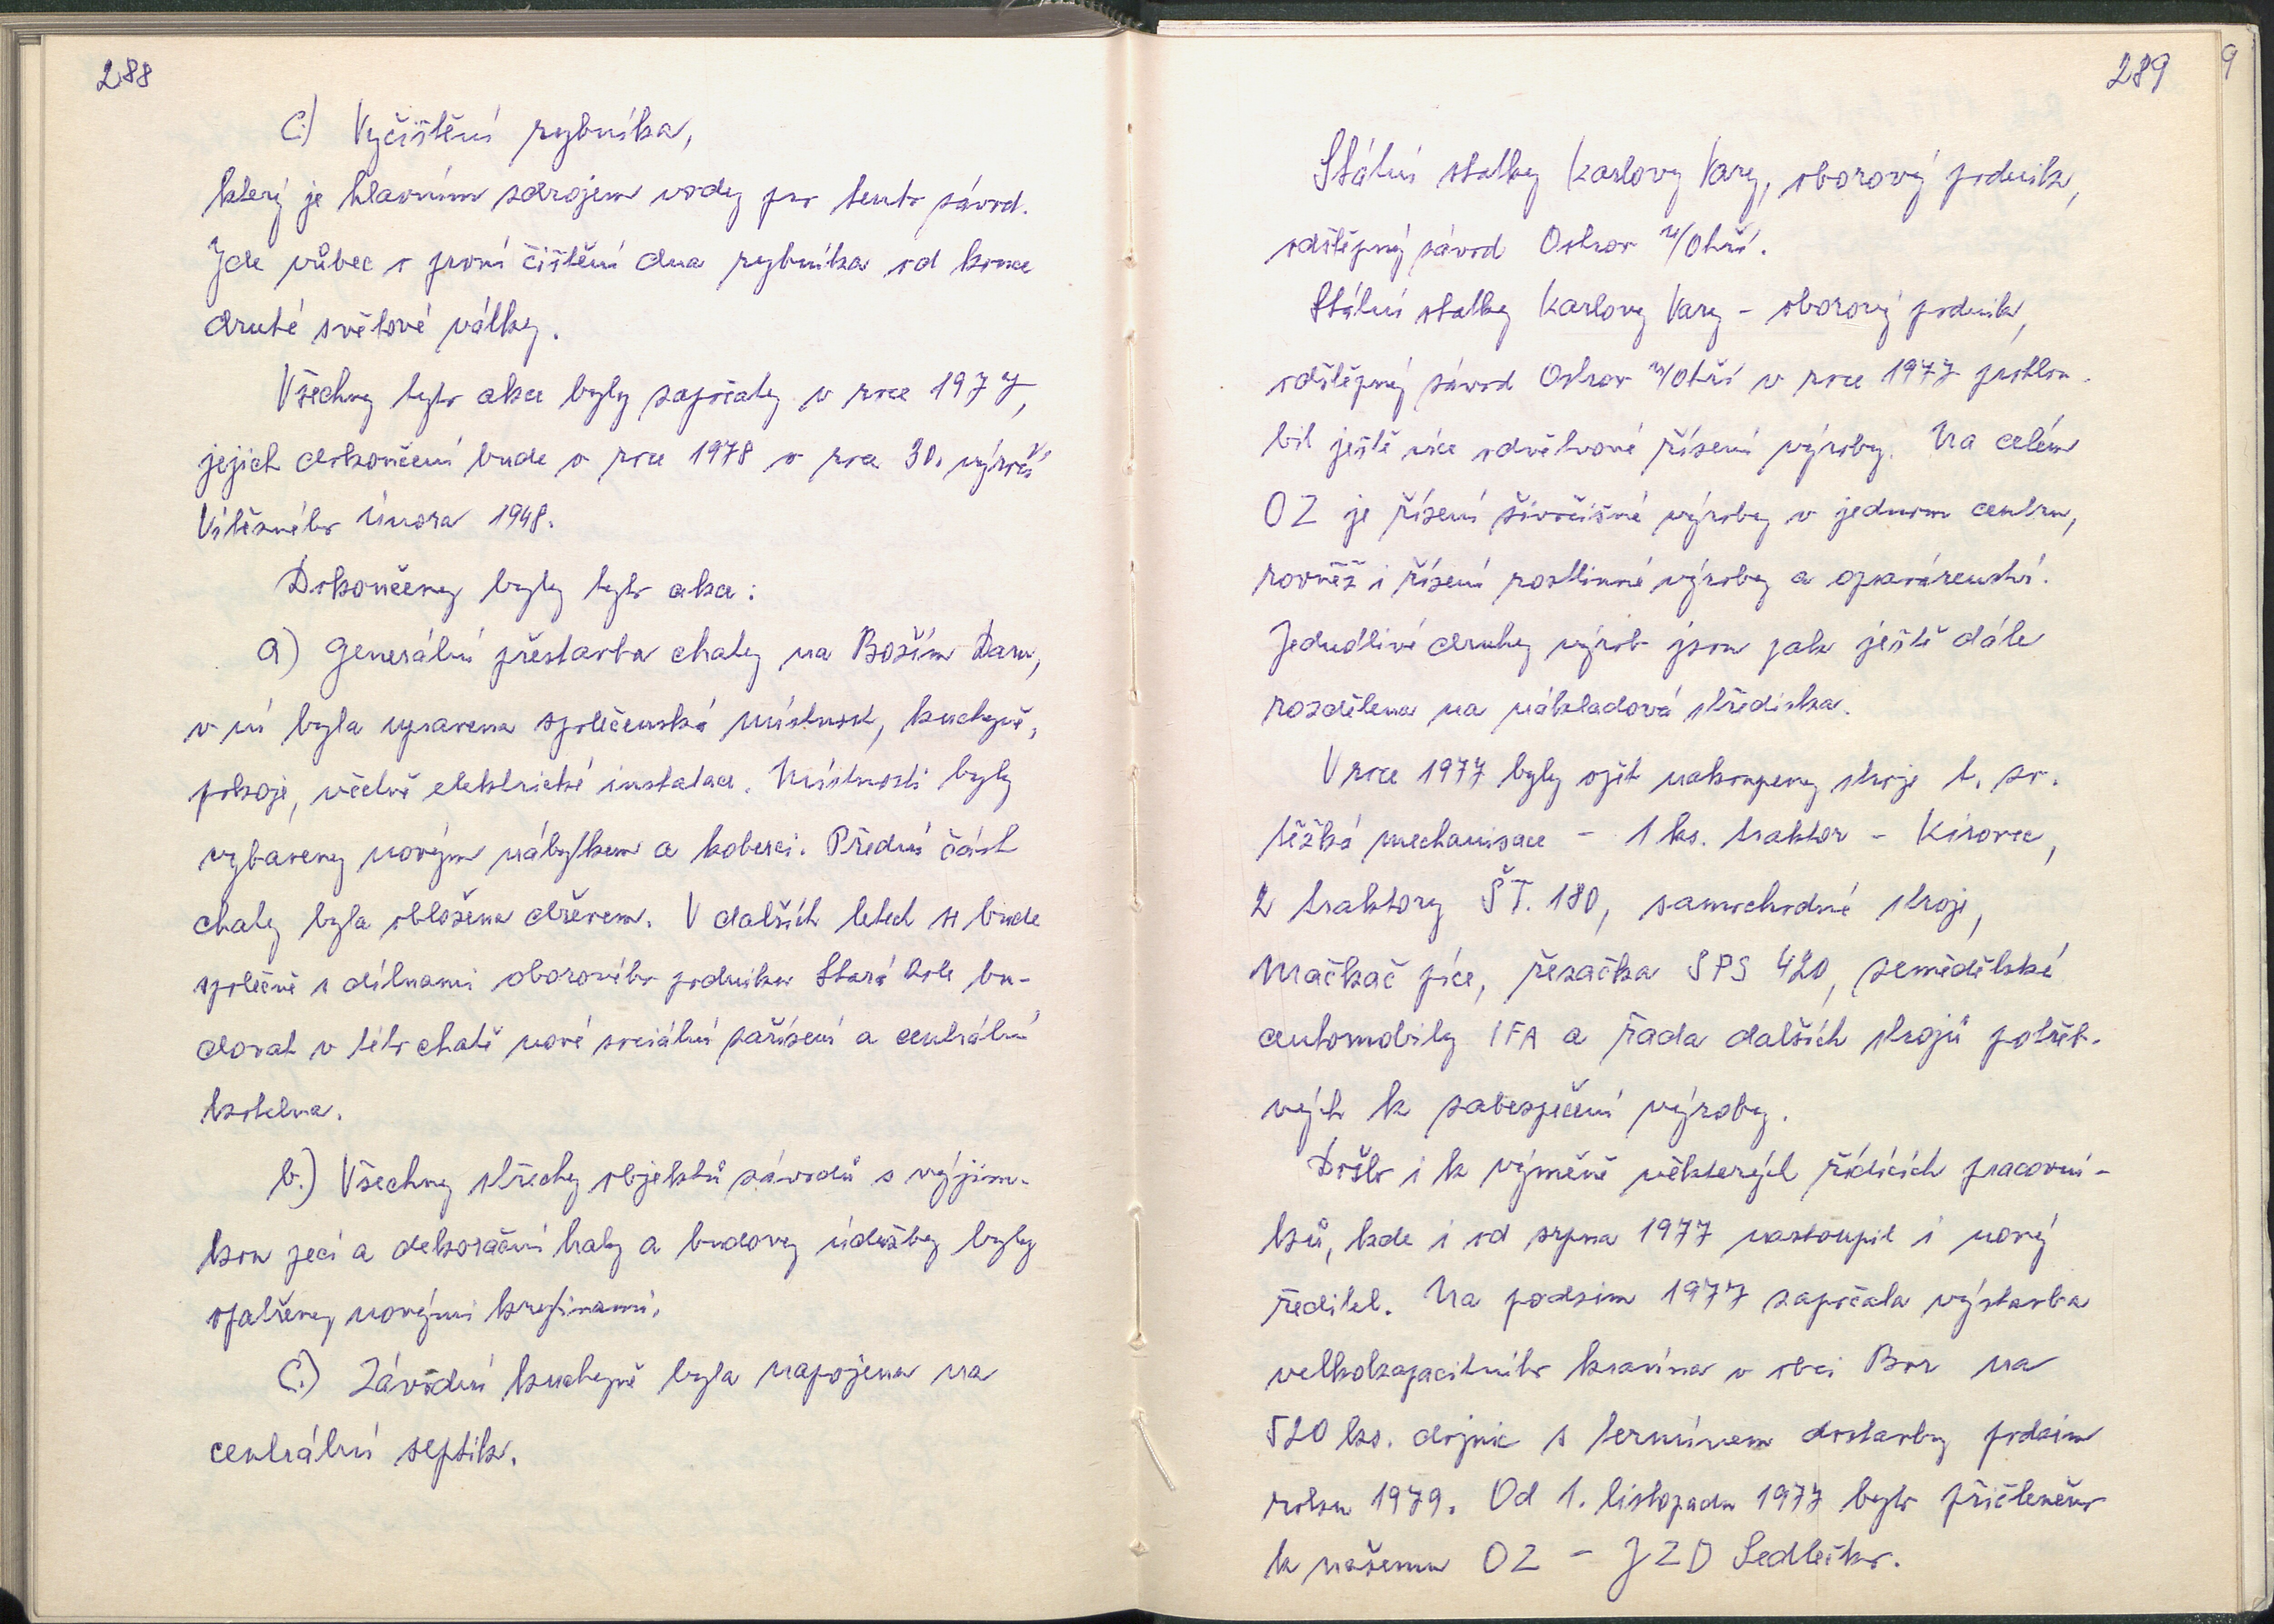 288
C.) Vyčištění rybníka,
který je hlavním zdrojem vody pro tento závod.
Jde vůbec o první čištění dna rybníka od konce
druhé světové války.
Všechny tyto akce byly započaty v roce 1977,
jejich dokončení bude v roce 1978 v roce 30. výročí
Vítězného února 1948.
Dokončeny byly tyto akce:
a) Generální přestavba chaty na Božím Daru,
v ní byla upravena společenská místnost, kuchyně,
pokoje, včetně elektrické instalace. Místnosti byly
vybaveny novým nábytkem a koberci. Přední část
chaty byla obložena dřevem. V dalších letech se bude
společně s dílnami oborového podniku Stará Role bu-
dovat v této chatě nové sociální zařízení a centrální
kotelna.
b.) Všechny střechy objektů závodů s výjim-
kou pecí a dekorační haly a budovy údržby byly
opatřeny novými krytinami.
C.) Závodní kuchyně byla napojena na
centrální septik.
289
9
Státní statky Karlovy Vary, oborový podnik,
odštěpný závod Ostrov n/Ohří.
Státní statky Karlovy Vary - oborový podnik,
odštěpný závod Ostrov n/Ohří v roce 1977 prohlou-
bil ještě více odvětvové řízení výroby. Na celém
OZ je řízení živočišné výroby v jednom centru,
rovněž i řízení rostlinné výroby a opravárenství.
Jednotlivé druhy výrob jsou pak ještě dále
rozdělena na nákladová střediska.
V roce 1977 byly opět nakoupeny stroje t. zv.
těžká mechanisace - 1 ks. traktor - Kirovec,
2 traktory ŠT. 180, samochodné stroje,
Mačkač píce, řezačka SPS 420, zemědělské
automobily IFA a řada dalších strojů potřeb-
ných k zabezpečení výroby.
Došlo i k výměně některých řídících pracovní-
ků, kde i od srpna 1977 nastoupil i nový
ředitel. Na podzim 1977 započala výstavba
velkokapacitního kravína v obci Bor na
520 ks. dojnic s termínem dostavby podzim
roku 1979. Od 1. listopadu 1977 bylo přičleněno
k našemu OZ - JZD Sedlečko.